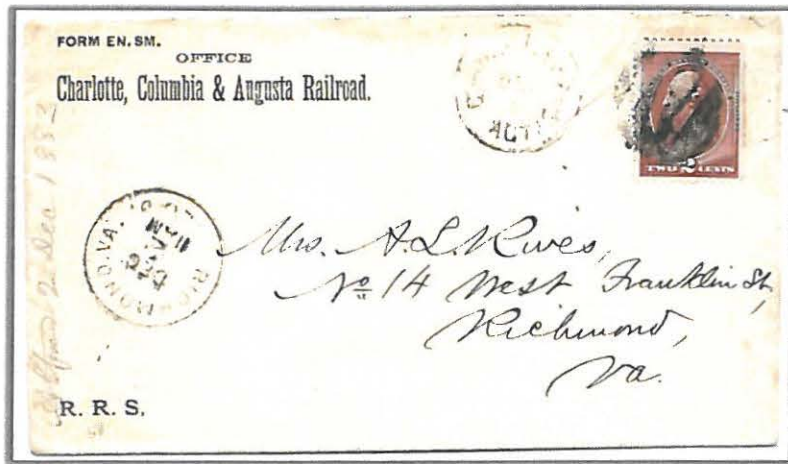 FORM EN. SM.
OFFICE
Charlotte, Columbia & Augusta Railroad.
TWO 2 CENTS
RICHMOND, VA.
DEC
11 AM
Mrs. A. L. Rives,
No 14 West Franklin St,
Richmond,
Va.
2 Dec 1883
R. R. S.